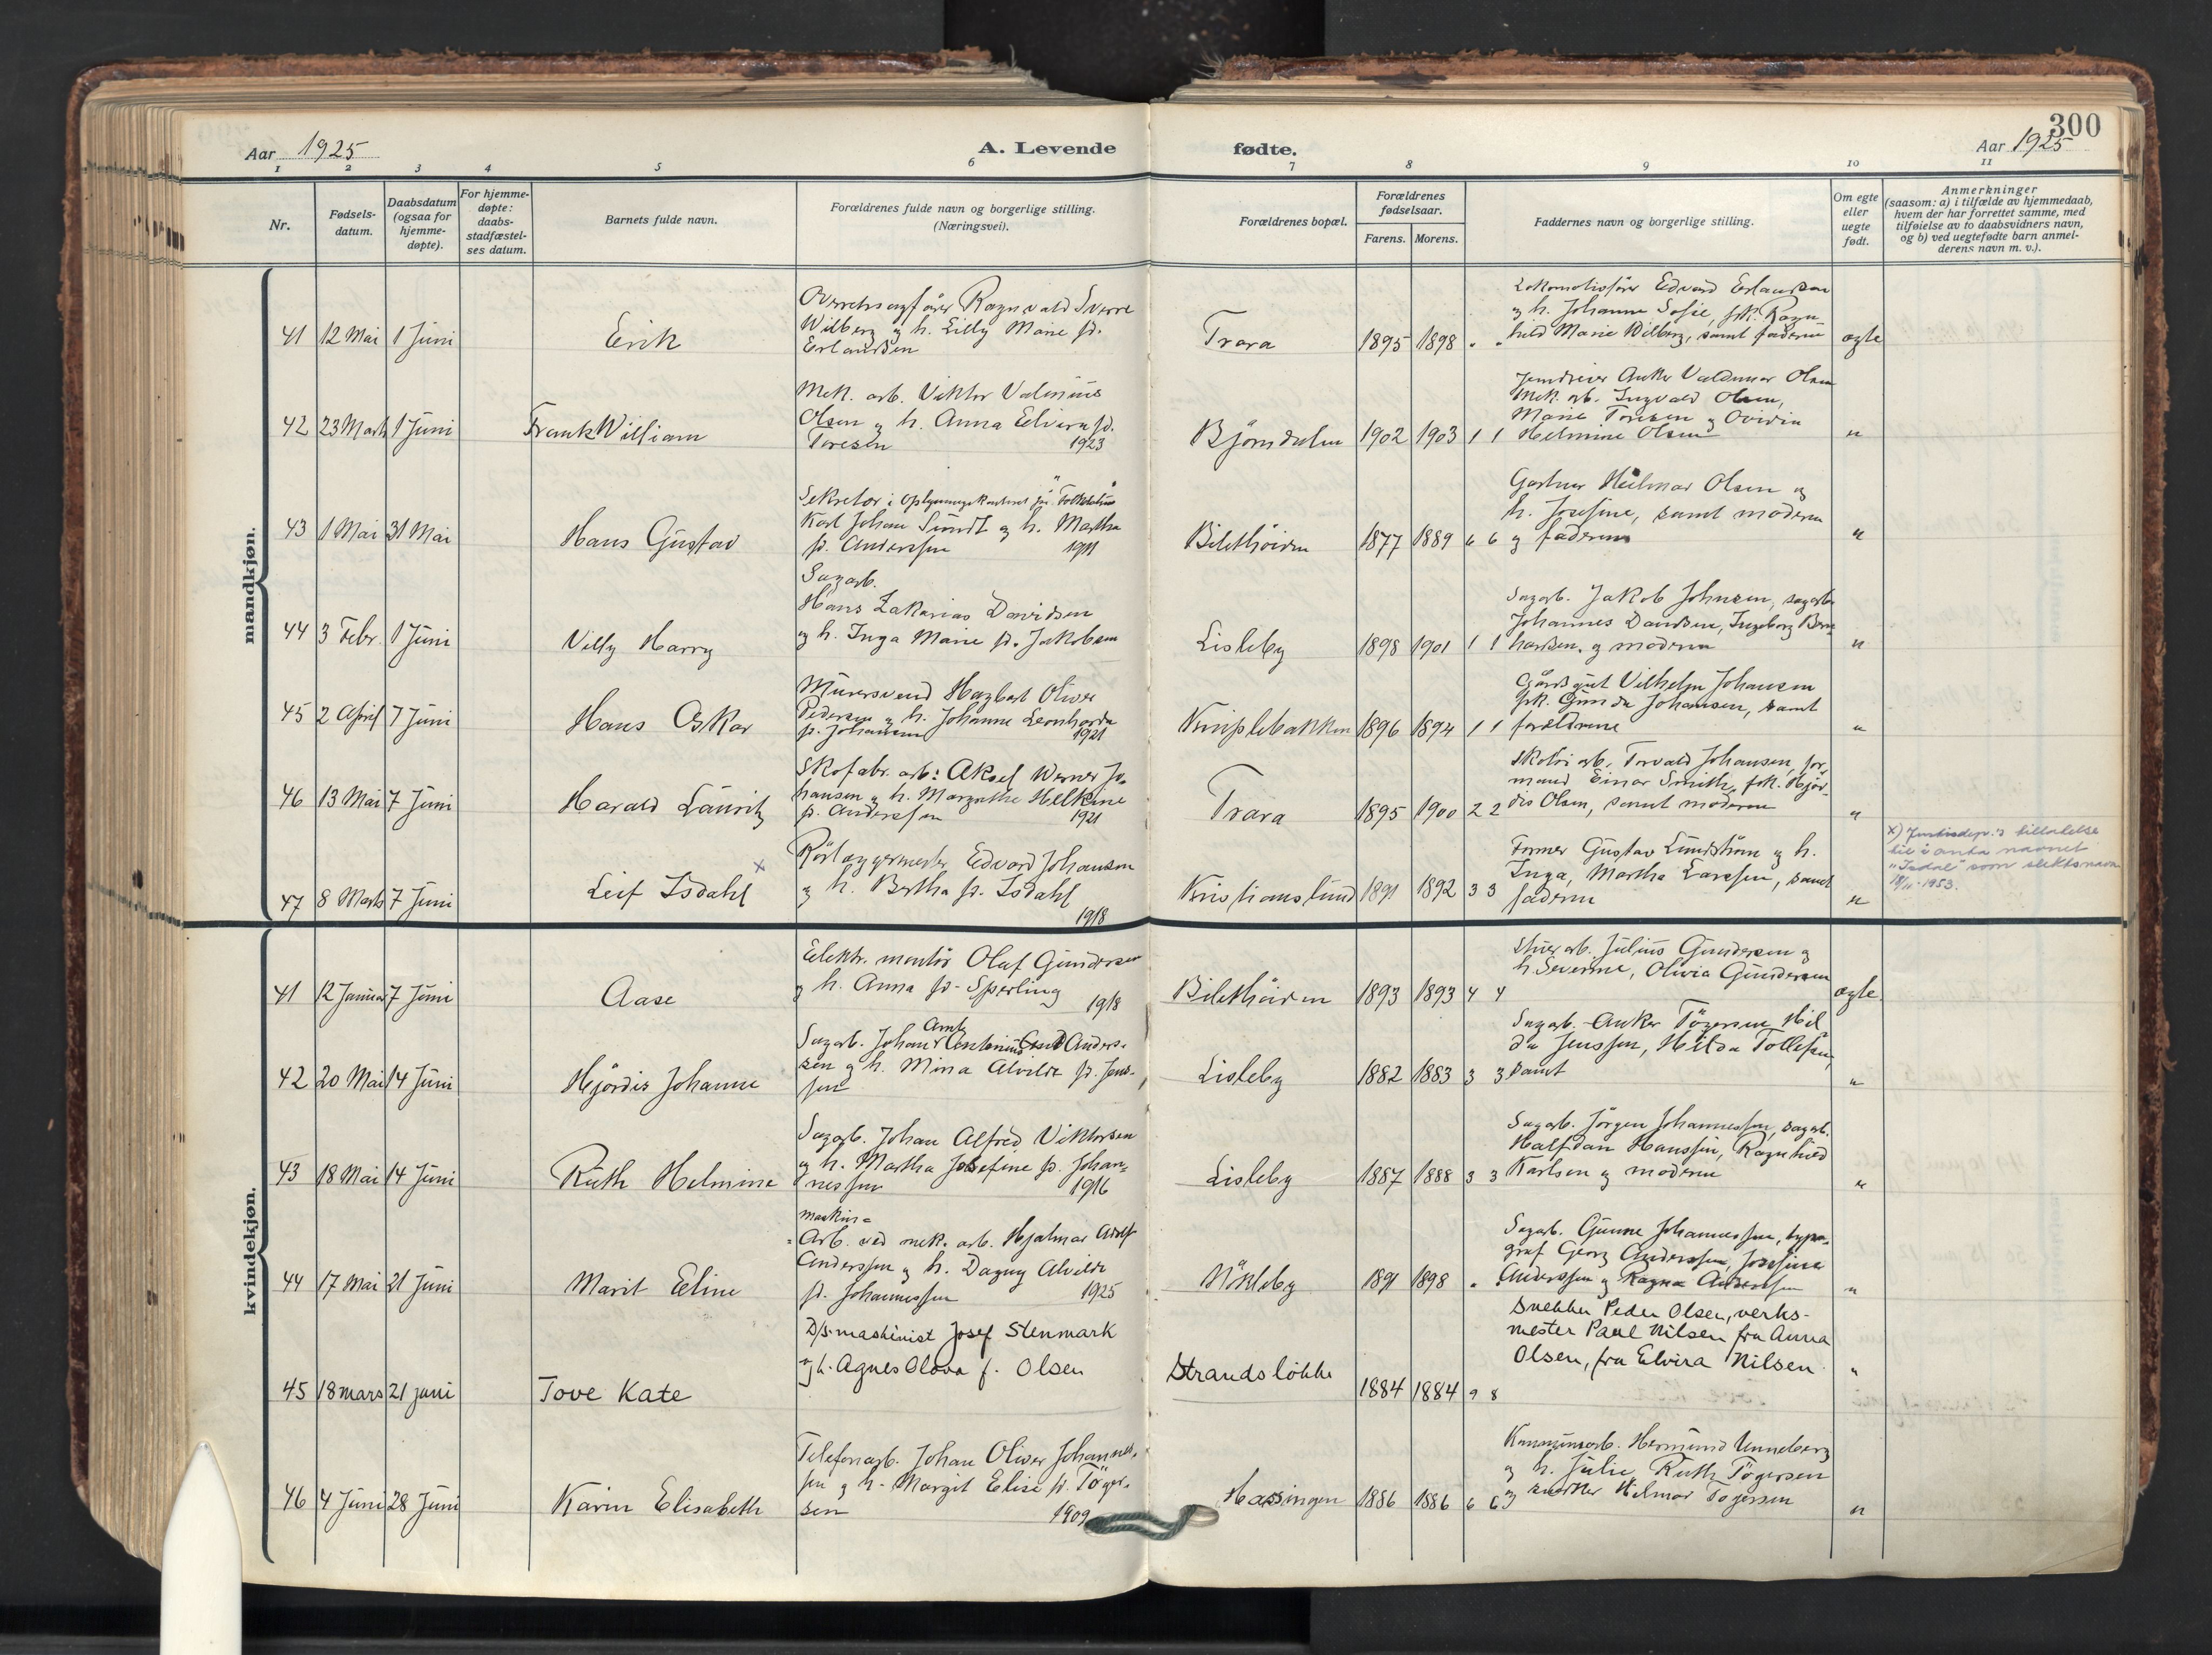 300
Aar 1925
A. Levende
fødte.
Aar 1925
1 2 3 4 5 6 7 8 9 10 11
Nr.
Fødsels-
datum.
Daabsdatum
(ogsaa for
hjemme-
døpte).
For hjemme-
døpte:
daabs-
stadfæstel-
ses datum.
Barnets fulde navn.
Forældrenes fulde navn og borgerlige stilling.
(Næringsvei).
Forældrenes bopæl.
Forældrenes
fødselsaar.
Farens. Morens.
Faddernes navn og borgerlige stilling.
Om egte
eller
uegte
født.
Anmerkninger
(saasom: a) i tilfælde av hjemmedaab,
hvem der har forrettet samme, med
tilføielse av to daabsvidners navn,
og b) ved uegtefødte barn anmel-
derens navn m. v.).
mandkjøn.
41 12 Mai 1 Juni
Erik
Overretssagfører Ragnvald Sverre
Wilberg og h. Lilly Marie f.
Erlandsen
Trara
1895 1898 " "
Lokomotivfører Edvard Erlandsen
og h. Johanne Sofie, frk. Ragn
hild Marie Wilberg, samt faderen
ægte
42 23 Marts 1 Juni
Frank William
Mek. arb. Viktor Valinius
Olsen og h. Anna Elvira f.
Toresen 1923
Bjørnsdalen
1902 1903 1 1
Jerndreier Anker Valdemar Olsen
Mek. arb. Ingvald Olsen,
Marie Toresen og Ovidia
Helmine Olsen
"
43 1 Mai 31 Mai
Hans Gustav
Sekretær i Oplysningskontoret
Karl Johan Sundt og h. Martha
f. Anderssen 1911
Bilethøiden
1877 1889 6 6
Gartner Hilmar Olsen og
h. Josefine, samt moderen
og faderen
"
44 3 Febr. 1 Juni
Villy Harry
Sagarb.
Hans Zakarias Davidsen
og h. Inga Marie f. Jakobsen
Lisleby
1898 1901 1 1
Sagarb. Jakob Johnsen, sagarb.
Johannes Davidsen, Ingeborg Bern
hardsen, og moderen
"
45 2 April 7 Juni
Hans Oskar
Murersvend Hagbart Oliver
Pedersen og h. Johanne Leonharda
f. Johansen 1921
Kniplebakken
1896 1894 1 1
Gårdsgut Vilhelm Johansen
frk. Gunda Johansen, samt
forældrene
"
46 13 Mai 7 Juni
Harald Lauritz
Skofabr. arb. Aksel Werner Jo-
hansen og h. Margrethe Helkine
f. Anderssen 1921
Trara
1895 1900 2 2
Skotøi arb. Torvald Johansen, for
mand Einar Smith, frk. Hjør-
dis Olsen, samt moderen
"
47 8 Marts 7 Juni
Leif Isdahl x
Rørlæggermester Edvard Johansen
og h. Bertha f. Isdahl
1918
Kristianslund
1891 1892 3 3
Former Gustav Lundstrøm og h.
Inga, Martha Larssen, samt
faderen
"
x) Justisdep.'s tillatelse
til å anta navnet
"Isdal" som slektsnavn
19/11-1953.
kvindekjøn.
41 12 Januar 7 Juni
Aase
Elektr. montør Olaf Gundersen
og h. Anna f. Sperling 1918
Bilethøiden
1893 1893 4 4
Stuerarb. Julius Gundersen og
h. Severine, Olivia Gundersen
ægte
42 20 Mai 14 Juni
Hjørdis Johanne
Sagarb. Johan Antonius Anders-
sen og h. Mina Alvilde f. Jens-
sen
Lisleby
1882 1883 3 3
Sagarb. Anker Tøgersen, Hil
da Jenssen, Hilda Tollefsen,
samt
"
43 18 Mai 14 Juni
Ruth Helmine
Sagarb. Johan Alfred Viktorsen
og h. Martha Josefine f. Johan-
nessen 1916
Lisleby
1887 1888 3 3
Sagarb. Jørgen Johannessen, sagarb.
Halfdan Hanssen, Ragnhild
Karlsen og moderen
"
44 17 Mai 21 Juni
Marit Eline
maskin=
Arb. ved mek. arb. Hjalmar Adolf
Anderssen og h. Dagny Alvilde
f. Johannessen 1925
Nøkleby
1891 1898 " "
Sagarb. Gunne Johannessen, typo-
graf Georg Anderssen, Josefine
Anderssen og Ragna Anderssen
"
45 18 mars 21 juni
Tove Kate
D/S maskinist Josef Stenmark
og h. Agnes Olava f. Olsen
Strandsløkke
1884 1884 9 8
Snekker Peder Olsen, verks-
mester Paul Nilsen fru Anna
Olsen, fru Elvira Nilsen
"
46 4 Juni 28 Juni
Karin Elisabeth
Telefonarb. Johan Oliver Johannes-
sen og h. Margit Elise f. Tøger-
sen 1909
Hassingen
1886 1886 6 6
Kommunearb. Hermund Unneberg
og h. Julie, Ruth Tøgersen
og snekker Hilmar Tøgersen
"